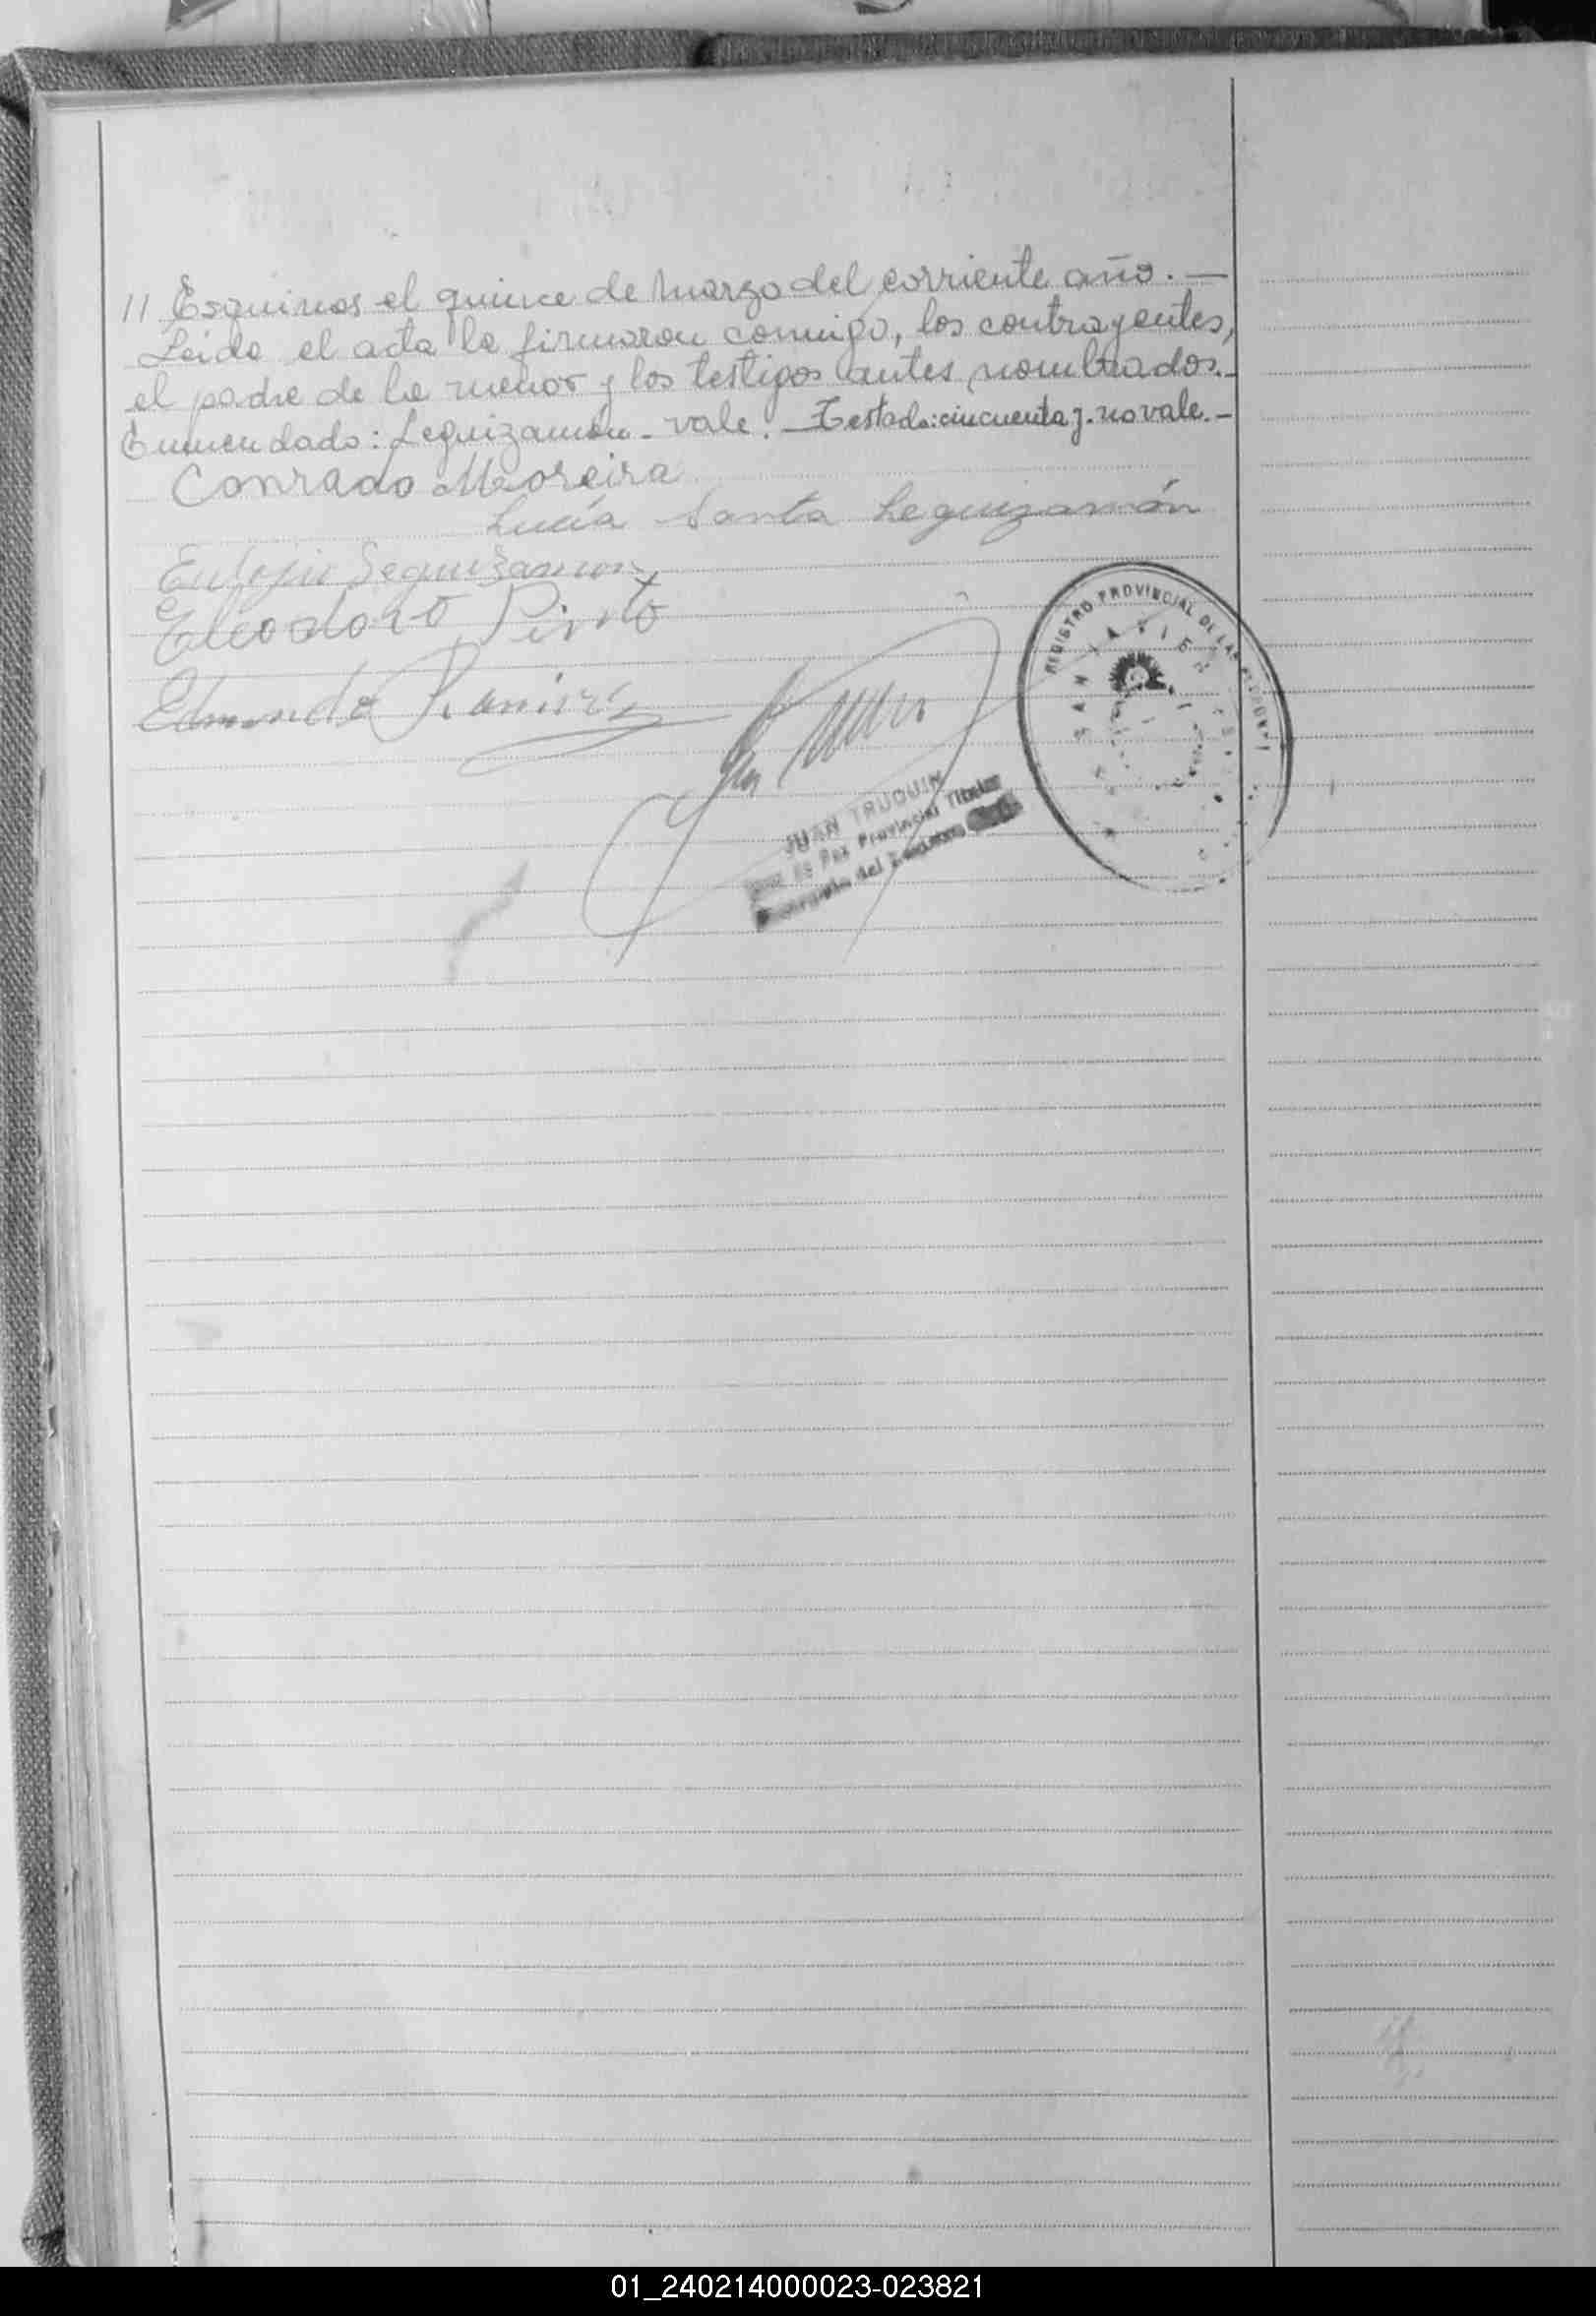 // Esquinas el quince de marzo del corriente año. —
Leída el acta la firmaron conmigo, los contrayentes,
el padre de la menor y los testigos antes nombrados.-
Enmendado: Leguizamón - vale. - Testado: cincuenta y. no vale. -
Conrado Moreira
Lucía Santa Leguizamón
Eulojio Leguizamon
Eleodoro Pinto
Edmundo Ramirez
REGISTRO PROVINCIAL DE LAS PERSONAS
SAN JAVIER
JUAN TRUQUIN
Juez de Paz Provincial Titular
01_240214000023-023821